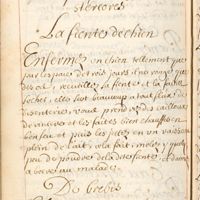 stercores
La fiente de chien
Enfermez un chien tellement que
par l'espace de trois jours il ne ronge que
des os, recueillez la fiente et la faites
secher, elle sert beaucoup a tout flux de
disenteries, vous prendrez des cailloux
de riviere et les faites bien chauffer en
bon feu et puis les jetez en un vaisseau
plein de lait, cela fait, mettez y quelque
peu de poudre de la dite fiente, et donnez
a boire au malade.
De brebis